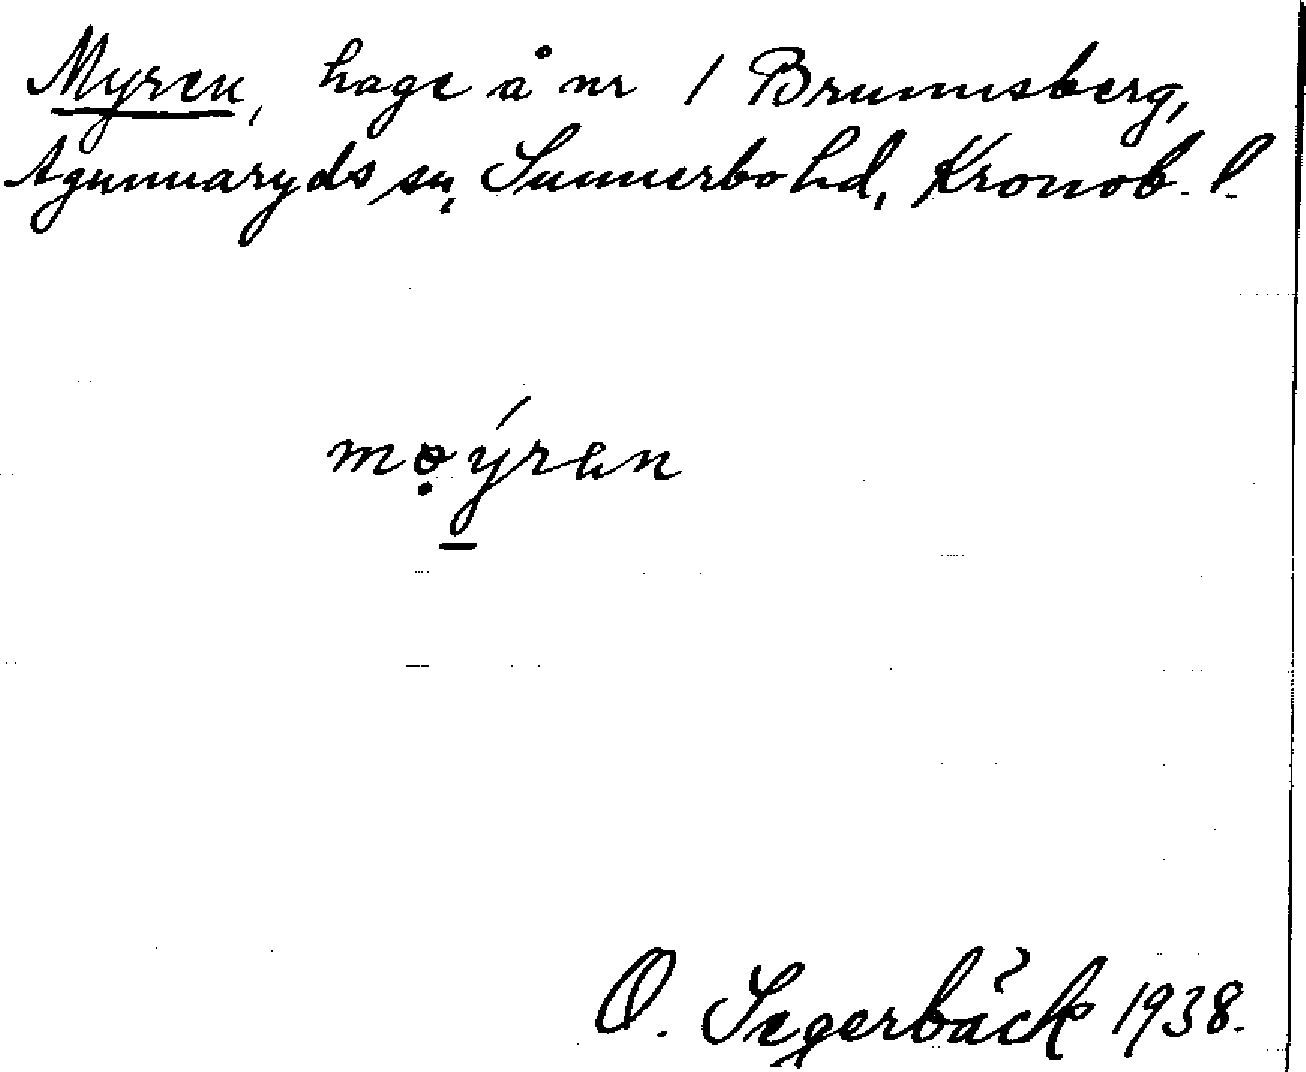 Myren, hage å nr 1 Brunnsberg,
Agunnaryds sn, Sunnerbo hd, Kronob. l.
mə̣ýrən
O. Segerbäck 1938.